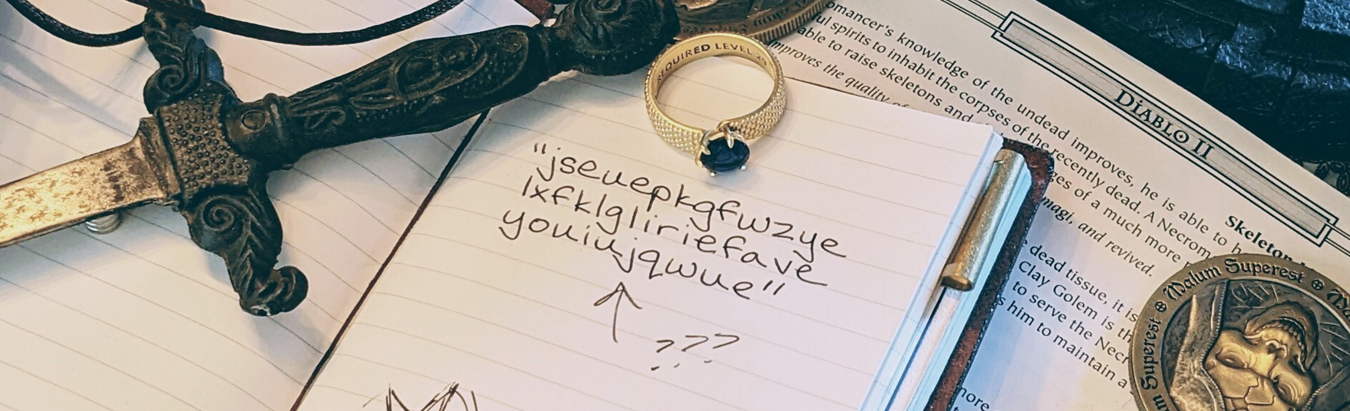 REQUIRED LEVEL
"jseuepkgfwzye
lxfklgliriefave
youiujqwue"
???
DIABLO II
knowledge of the undead improves, he is able to
spirits to inhabit the corpses of the recently dead. A
able to raise skeletons and of a much more
improves the quality of magi, and revived.
dead tissue, it is
Clay Golem is
to serve the
him to maintain a
more
Malum Superest
Superest